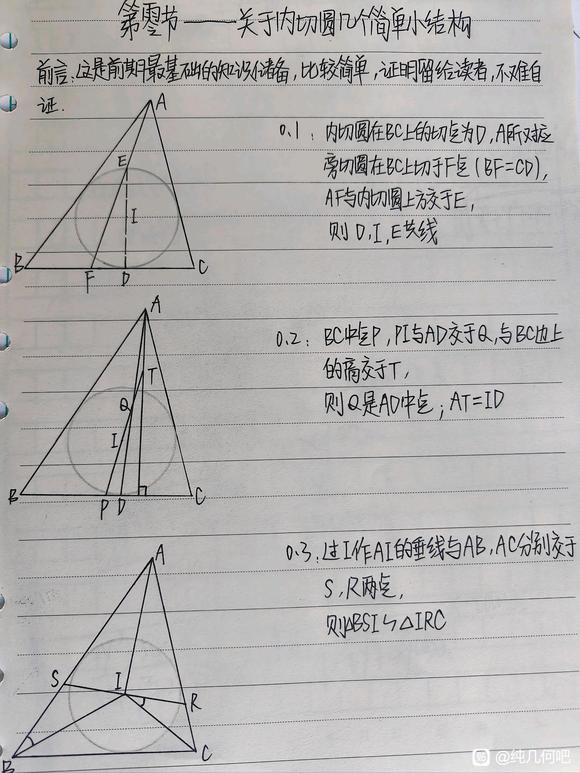 第零节——关于内切圆几个简单小结构
前言:这是前期最基础的知识储备,比较简单,证明留给读者,不难自
证.
0.1: 内切圆在BC上的切点为D,A所对应
旁切圆在BC上切于F点(BF=CD),
AF与内切圆上方交于E,
则D,I,E共线
A
E
I
B
F
D
C
0.2: BC中点P,PI与AD交于Q,与BC边上
的高交于T,
则Q是AD中点;AT=ID
A
T
Q
I
B
P
D
C
0.3:过I作AI的垂线与AB,AC分别交于
S,R两点,
则△BSI∽△IRC
A
S
I
R
B
C
知 @纯几何吧